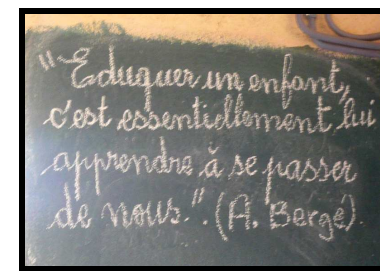 "Eduquer un enfant,
c'est essentiellement lui
apprendre à se passer
de nous.". (A. Bergé).